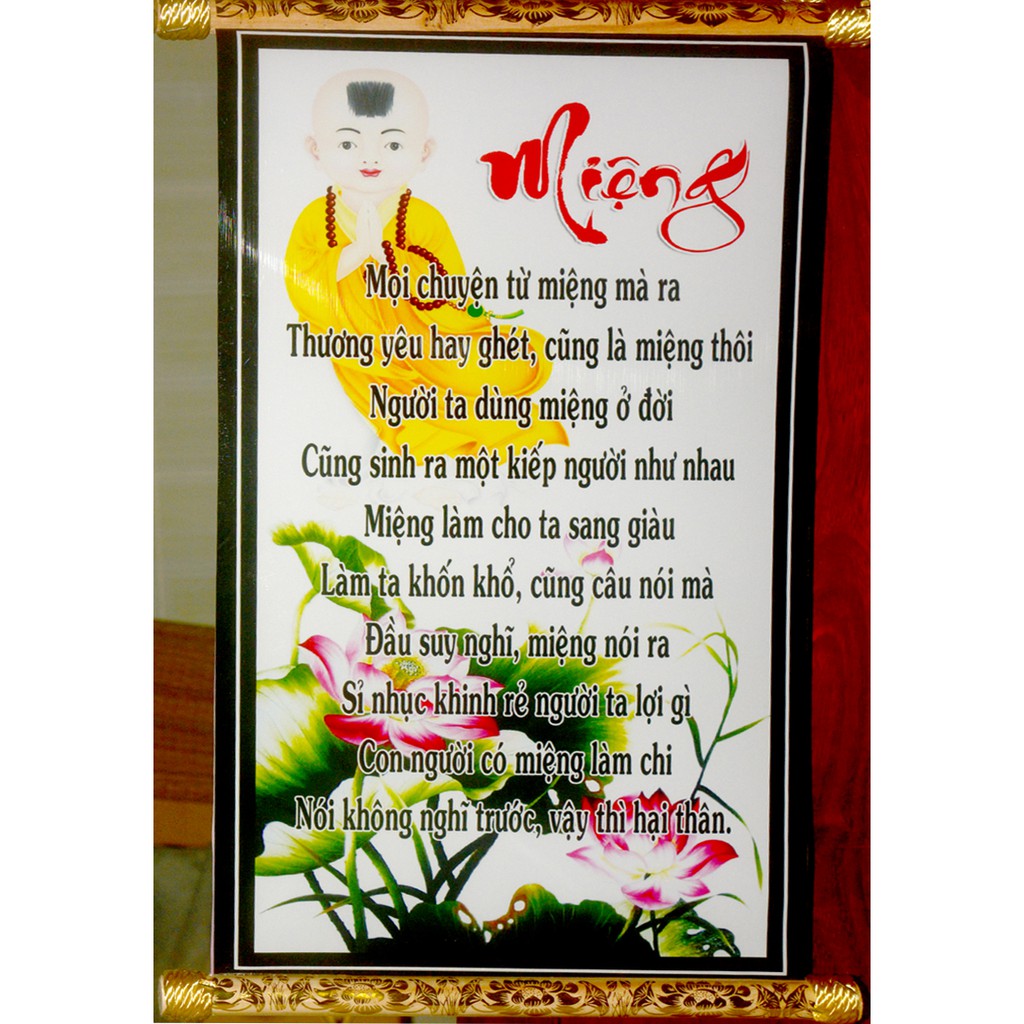 Miệng
Mọi chuyện từ miệng mà ra
Thương yêu hay ghét, cũng là miệng thôi
Người ta dùng miệng ở đời
Cũng sinh ra một kiếp người như nhau
Miệng làm cho ta sang giàu
Làm ta khốn khổ, cũng câu nói mà
Đầu suy nghĩ, miệng nói ra
Sỉ nhục khinh rẻ người ta lợi gì
Con người có miệng làm chi
Nói không nghĩ trước, vậy thì hại thân.